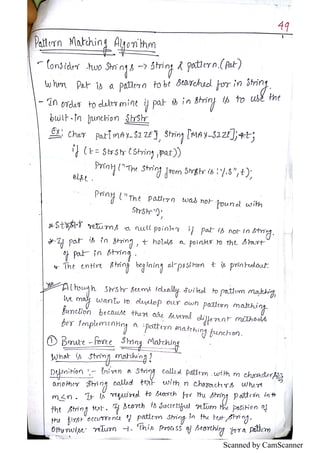 49
Pattern Matching Algorithm
- Consider two strings → string & pattern.(pat)
when pat is a pattern to be searched for in string.
- In order to determine if pat is in string is to use the
built-in function strstr
Ex: char pat[MAX_SIZE], string [MAX_SIZE], *t;
if (t = strstr (string, pat))
printf ("The string from strstr is : %s", t);
else
printf ("The pattern was not found with
strstr");
* strstr returns a null pointer if pat is not in string.
* If pat is in string, t holds a pointer to the start
of pat in string.
* The entire string beginning at position t is printed out.
Although strstr seems ideally suited to pattern matching,
we may want to develop our own pattern matching
function because there are several different methods
for implementing a pattern matching function.
① Brute-force string Matching
What is string matching?
Definition :- Given a string called pattern with m characters
another string called text with n characters where
m≤n. It is required to search for the string pattern in
the string text. If search is successful return the position of
the first occurrence of pattern string in the text string.
Otherwise return -1. This process of searching for a pattern
Scanned by CamScanner